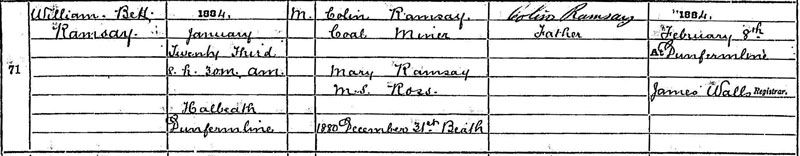 71
William Bett
Ramsay.
1884,
January
Twenty Third
8. h. 30m, am.
Halbeath
Dunfermline
M.
Colin Ramsay.
Coal Miner
Mary Ramsay
M.S. Ross.
1880 December 31st Beath
Colin Ramsay
Father
1884.
February 8th
At Dunfermline
James Walls Registrar.